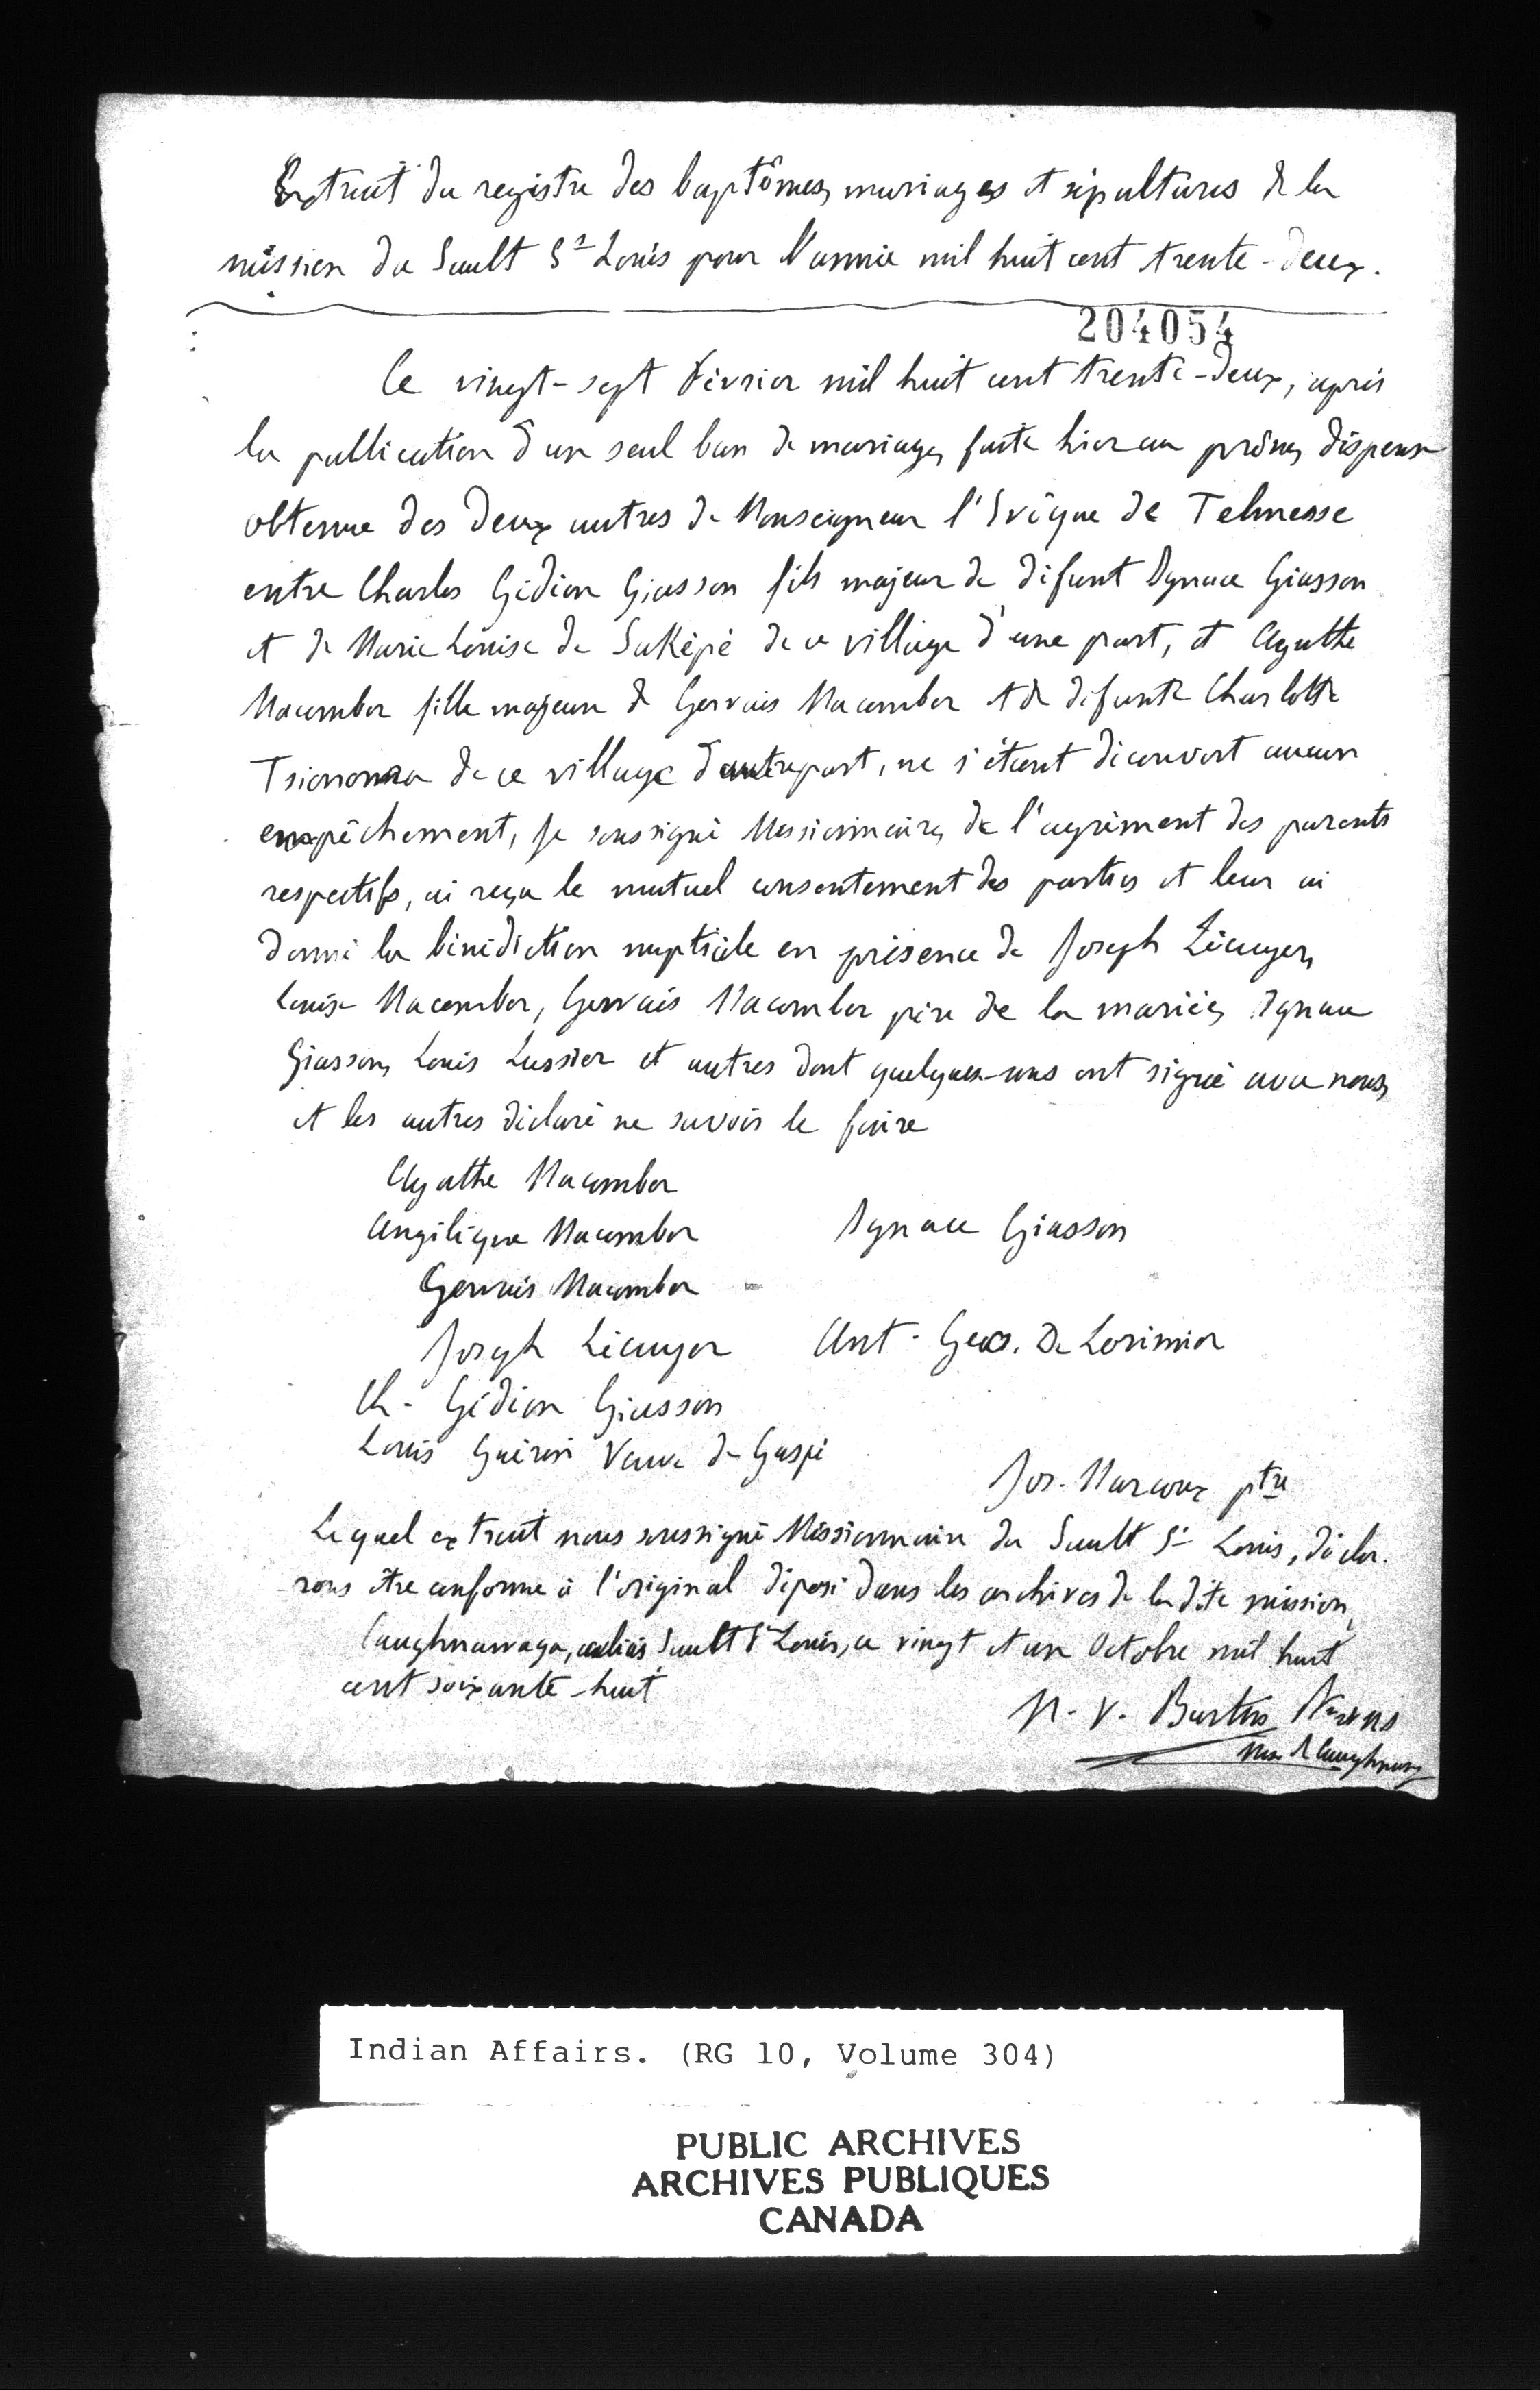 Extrait du registre des baptêmes, mariages et sépultures de la
mission du Sault St Louis pour l'année mil huit cent trente-deux.
204054
Ce vingt-sept Février mil huit cent trente-deux, après
la publication d'un seul ban de mariage, faite hier au prône, dispense
obtenue des deux autres de Monseigneur l'Evêque de Telmesse
entre Charles Gédéon Giasson fils majeur de défunt Ignace Giasson
et de Marie Louise de Caképé de ce village d'une part, et Agathe
Macomber fille majeure de Gervais Macomber et de défunte Charlotte
de ce village d'autre part, ne s'étant découvert aucun
empêchement, Je soussigné Missionnaire, de l'agrément des parents
respectifs, ai reçu le mutuel consentement des parties et leur ai
donné la bénédiction nuptiale en présence de Joseph Lécuyer,
Louis Macomber, Gervais Macomber père de la mariée, Ignace
Giasson, Louis Lussier et autres dont quelques-uns ont signé avec nous,
et les autres déclaré ne savoir le faire
Agathe Macomber
Angélique Macomber Ignace Giasson
Gervais Macomber
Joseph Lécuyer Ant. Geo. De Lorimier
Ch. Gédéon Giasson
Louis Veuve de Gaspé
Jos. Marcoux ptre
Lequel extrait nous soussigné Missionnaire du Sault St Louis, décla-
rons être conforme à l'original déposé dans les archives de la dite mission,
Caughnawaga, alias Sault St Louis, ce vingt et un Octobre mil huit
cent soixante-huit
N. V. Burtin
Indian Affairs. (RG 10, Volume 304)
PUBLIC ARCHIVES
ARCHIVES PUBLIQUES
CANADA